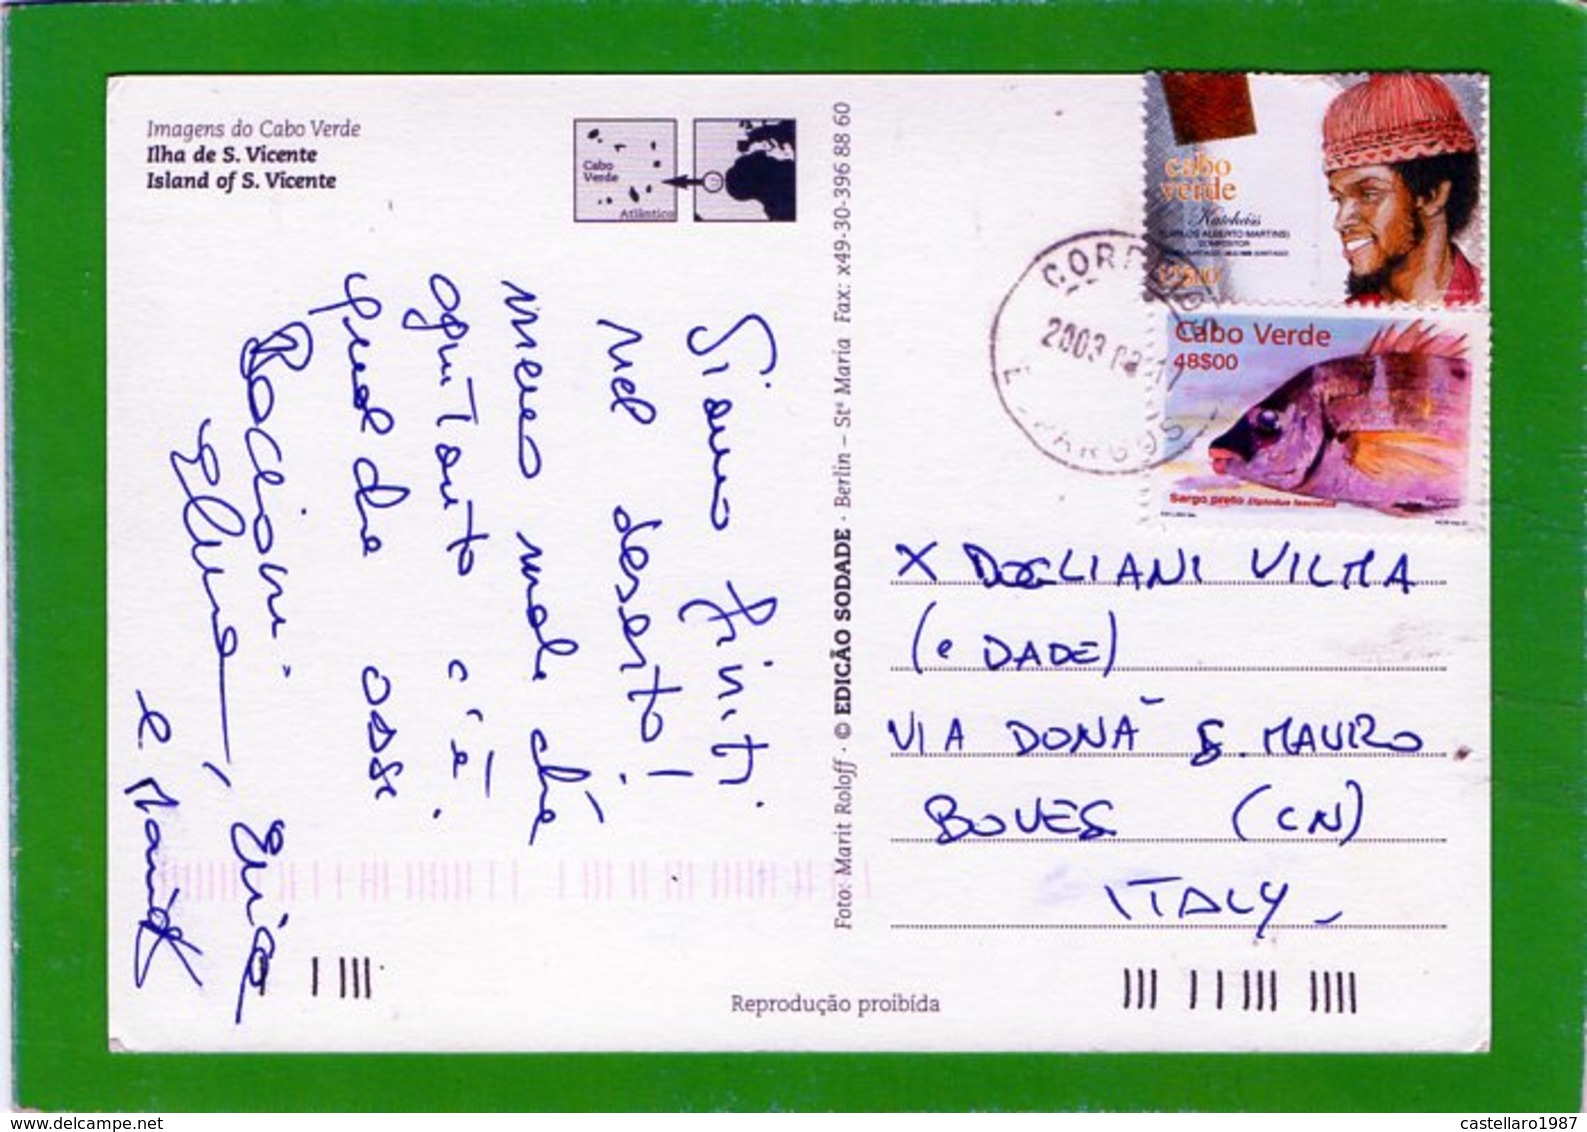 Imagens do Cabo Verde
Ilha de S. Vicente
Island of S. Vicente
Cabo
Verde
Atlântico
Siamo finiti
nel deserto!
meno male che
ogni tanto c'è
qualche oasi
Bacioni
Elena, Enrico
e
Foto: Marit Roloff · © EDICÃO SODADE · Berlin – Stª Maria Fax: x49-30-396 88 60
cabo
verde
Katchás
(CARLOS ALBERTO MARTINS)
COMPOSITOR
CORREIOS
2003
ESPARGOS
Cabo Verde
48$00
Sargo preto Diplodus fasciatus
X DOGLIANI VILMA
(e DADE)
VIA DONÀ S. MAURO
BOVES (CN)
ITALY
Reprodução proibída
www.delcampe.net
castellaro1987